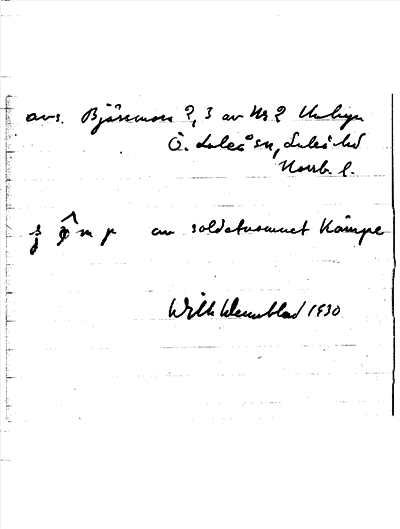 avs. Bjärsmors 2, 3 av Nr 2 Unbyn
Ö. Luleå sn, Luleå tld
Norrb. l.
av soldatnamnet Kämpe
Wilh Wennblad 1930